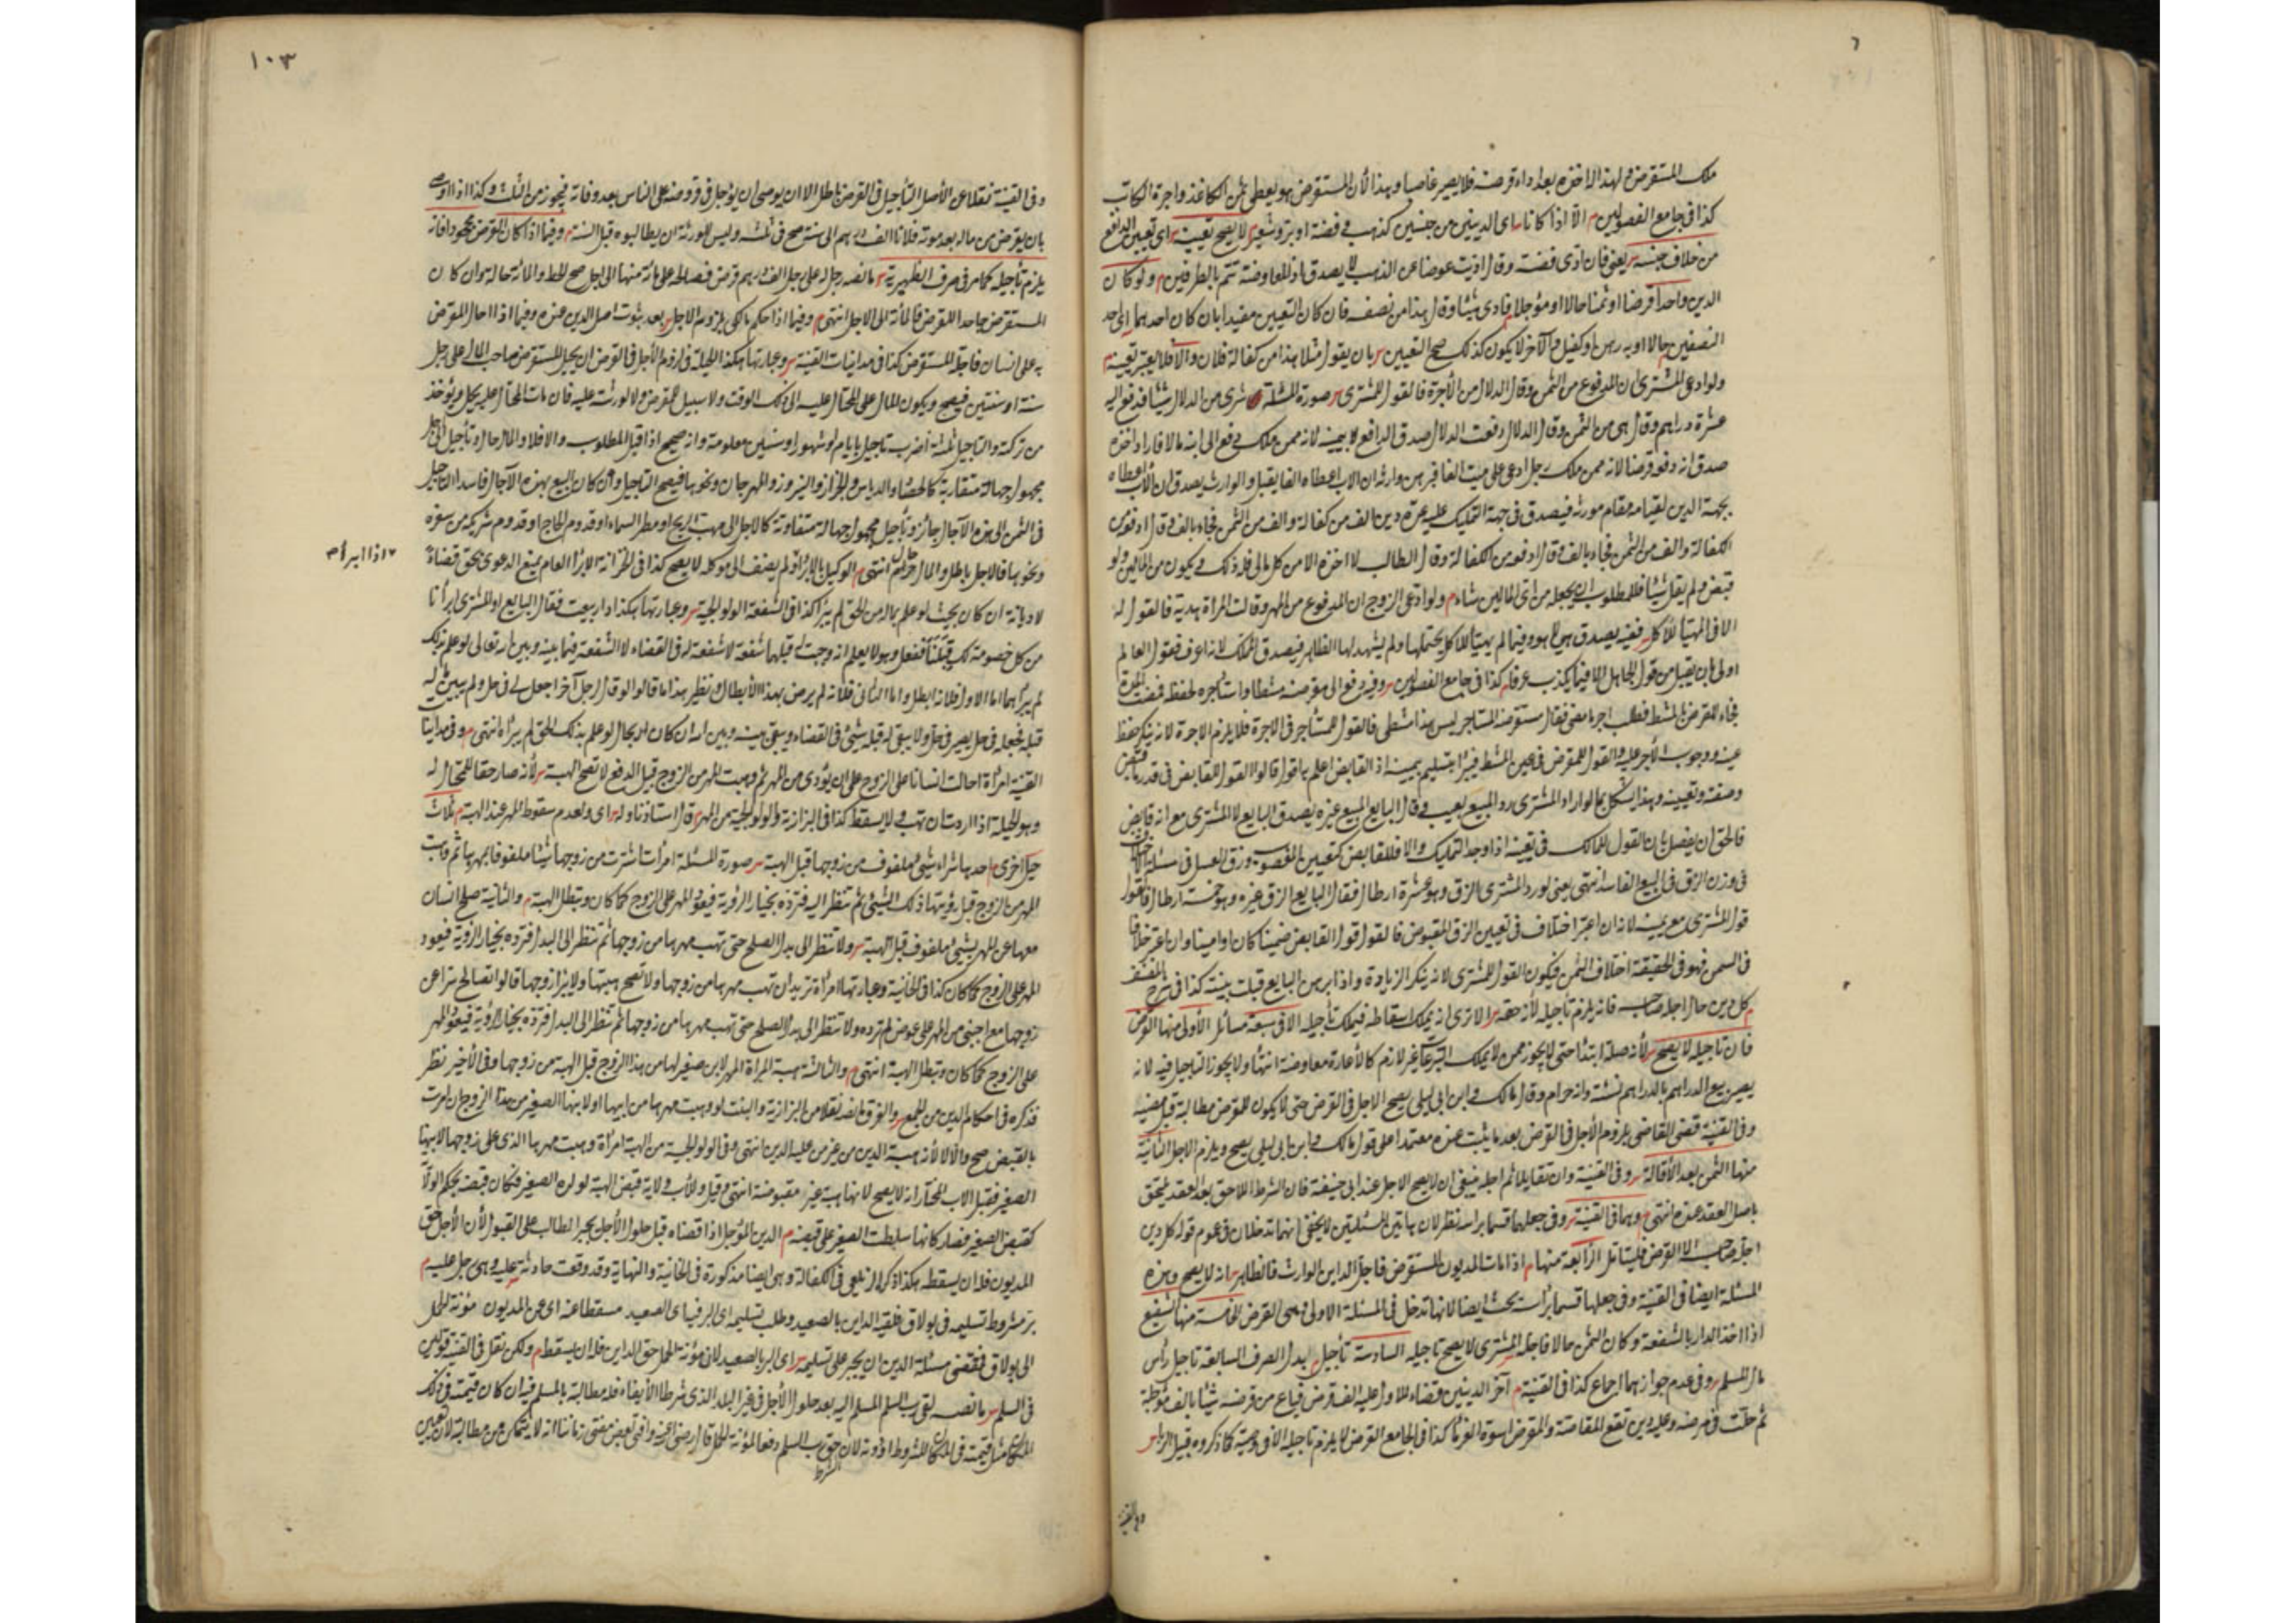 ملك المستقرض ولهذا له اخذه بعد اداء قرضه فلا يصير غاصبا وبهذا لأن المستقرض هو يعطى ثمن الكاغذ واجرة الكاتب
كذا فى جامع الفصولين م الا اذا كانا اى الدينين من جنسين كذهب وفضة او بر وشعير لا يصح تعيينه اى تعيين الدافع
من خلاف جنسه يعنى فان ادى فضة وقال اديت عوضا عن الذهب لا يصدق اذ المعاوضة تتم بالطرفين م ولو كان
الدين واحدا قرضا او ثمنا حالا او مؤجلا فادى شيئا وقال هذا من نصفه فان كان التعيين مفيدا بان كان احدهما الى حد
النصفين حالا او به رهن او كفيل والآخر لا يكون كذلك صح التعيين بان يقول مثلا هذا من كفالة فلان والا فلا يعتبر تعيينه
ولو ادعى المشترى ان المدفوع من الثمن وقال الدلال من الأجرة فالقول للمشترى صورة المسئلة شرى من الدلال شيئا فدفع اليه
عشرة دراهم وقال هى من الثمن وقال الدلال دفعت الدلال صدق الدافع بيمينه لانه مملك دفع الى ابنه مالا فاراد اخذه
صدق انه دفعه قرضا لانه مملك رجل ادعى على ميت الفا فبرهن وارثه ان الاب اعطاه الفا يقبل والوارث يصدق ان الأب اعطاه
بجهة الدين لقيامه مقام مورثه فيصدق فى جهة التمليك عليه دين الف من كفالة والف من الثمن فجاء بالف وقال ادفع من
الكفالة والف من الثمن فجاء بالف وقال ادفعه من الكفالة وقال الطالب لا اخذه الا من كل مالى فله ذلك ويكون من المالين ولو
قبض ولم يقل شيئا فللمطلوب ان يجعله من اى المالين شاء م ولو ادعى الزوج ان المدفوع من المهر وقالت المرأة هدية فالقول له
الا فى المهيأ للأكل ففيه يصدق هى لا هو وفيما لم يهيأ للاكل يحتملها ولم يشهد لها الظاهر فيصدق المملك لانه اعرف فقول العالم
اولى بان يقبل من قول الجاهل الا فيما يكذب عرفا كذا فى جامع الفصولين وفيه دفع الى مقرضه مشطا واستأجره لحفظ
فجاء المقرض بالمشط فطلب اجر ما مضى فقال مستقرضه المستاجر ليس هذا مشطى فالقول للمستأجر فى الاجرة فلا يلزم الاجرة لانه ينكر حفظ
عينه ووجوب الأجر عليه والقول للمقرض فى عين المشط فيبرأ بتسليم يمينه اذ القابض اعلم به اقول قالوا القول للقابض فى قدر ما قبض
وصفته وتعيينه وبهذا يشكل بما لو اراد المشترى رد المبيع بعيب وقال البايع المبيع غيره يصدق البايع لا المشترى مع انه قابض
فالحق ان يفصل بان القول للمالك فى تعينه اذا وجد التمليك والا فللقابض كتعيين المغصوب وزق العسل فى مسئلة
فى وزن الزق فى البيع الفاسد انتهى يعنى لو رد المشترى الزق وهو عشرة ارطال فقال البايع الزق غيره وهو خمسة ارطال فالقول
قول المشترى مع يمينه لانه ان اعتبر اختلاف فى تعيين الزق المقبوض فالقول قول القابض ضمينا كان او امينا وان اعتبر خلافا
فى السمن فهو فى الحقيقة اختلاف الثمن فيكون القول للمشترى لانه ينكر الزيادة واذا برهن البايع قبلت بينته كذا فى شرح المصنف
م كل دين حال اجله صاحبه فانه يلزم تأجيله لأنه حقه الا ترى انه يملك اسقاطه فيملك تأجيله الا فى سبعة مسائل الأولى منها القرض
فان تأجيله لا يصح لأنه صلة ابتداء حتى لا يجوز ممن لا يملك التبرعات غير لازم كالأعارة معاوضة انتهاء ولا يجوز التأجيل فيه لانه
يصير بيع الدراهم بالدراهم نسئة وانه حرام وقال مالك وابن ابى ليلى يصح الاجل فى القرض حتى لا يكون للمقرض مطالبة قبل مضيه
وفى القنية قضى القاضى بلزوم الأجل فى القرض بعد ما يثبت عنده معتمدا على قول مالك وابن ابى ليلى يصح ويلزم الاجل الثانية
منها الثمن بعد الأقالة وفى القنية وان تقايلا ثم اجله ينبغى ان لا يصح الاجل عند ابى حنيفة فان الشرط اللاحق بعد العقد يلتحق
باصل العقد عنده انتهى وهما فى القنية وفى جعلها قسما برأسه نظر لان هاتين المسئلتين لا يخفى انهما تدخلان فى عموم قوله كل دين
اجله صاحبه الا القرض فليتامل الرابعة منها م اذا مات المديون المستقرض فاجل الداين الوارث فالظاهر انه لا يصح وهذه
المسئلة ايضا فى القنية وفى جعلها قسما برأسه بحث ايضا لانها تدخل فى المسئلة الاولى وهى القرض الخامسة منها الشفيع
اذا اخذ الدار بالشفعة وكان الثمن حالا فاجله المشترى لا يصح تاجيله السادسة تأجيل بدل الصرف السابعة تاجيل رأس
مال السلم وفى عدم جوازهما اجماع كذا فى القنية م آخر الدينين قضاء للاول عليه الف قرض فباع من مقرضه شيئا بالف مؤجلة
ثم حلت فى مرضه وعليه دين تقع المقاصة والمقرض اسوة الغرماء كذا فى الجامع القرض لا يلزم تاجيله الا فى وصية كما ذكروه قبيل الربا
وفى القنية
١٠٣
وفى القنية نقلا عن الأصل التأجيل فى القرض باطل الا ان يوصى ان يؤجل قروضه على الناس بعد وفاته فيجوز من الثلث وكذا اذا اوصى
بان يقرض من ماله بعد موته فلانا الف درهم الى سنة صح فى ثلثه وليس للورثة ان يطالبوه قبل السنة وفيما اذا كان القرض مجحودا فانه
يلزم تأجيله كما مر فى صرف الظهيرية ما نصه رجل له على رجل الف درهم قرض فصالحه على مائة منها الى اجل صح الحط والمائة حالة وان كان
المستقرض جاحدا للقرض فالمائة الى الاجل انتهى م وفيما اذا حكم مالكى بلزوم الاجل بعد ثبوت اصل الدين عنده وفيما اذا احال المقرض
به على انسان فاجله المستقرض كذا فى مداينات القنية وعبارتها هكذا الحيلة فى لزوم الأجل فى القرض ان يحيل المستقرض صاحب المال على رجل
سنة او سنتين فيصح ويكون المال على المحتال عليه الى ذلك الوقت ولا سبيل للمقرض ولا لورثته عليه فان مات المحتال عليه يحل ويؤخذ
من تركته والتاجيل ثلثة اضرب تاجيل بايام او شهور او سنين معلومة وانه صحيح اذا قبل المطلوب والا فلا والمال حال وتأجيل الى اجل
مجهول جهالة متقاربة كالحصاد والدياس والجزاز والنيروز والمهرجان ونحوها فيصح التأجيل وان كان البيع بهذه الآجال فاسدا
فى الثمن الى هذه الآجال جائز وتأجيل مجهول جهالة متفاوتة كالاجل الى مهب الريح او مطر السماء او قدوم الحاج او قدوم شريكه من سفره
ونحوها فالاجل باطل والمال حال انتهى م الوكيل بالابراء لم يضف الى موكله لا يصح كذا فى الخزانة الابراء العام يمنع الدعوى بحق قضاء
اذا ابرأ م
لا ديانة ان كان بحيث لو علم بماله من الحق لم يبرأ كذا فى الشفعة الولوالجية وعبارتها هكذا دار بيعت فقال البايع او المشترى ابرأنا
من كل خصومة لك قبلنا ففعل وهو لا يعلم انه وجبت له قبلهما شفعة لا شفعة له فى القضاء لا الشفعة فيما بينه وبين الله تعالى لو علم بذلك
لم يبرأهما اما الاول فلانه ابطل واما الثانى فلأنه لم يرض بهذا الأبطال ونظير هذا ما قالوا لو قال رجل آخر اجعلنى فى حل ولم يبين ما له
قبله فجعله فى حل يصير فى حل ولا يبقى له قبله شئ فى القضاء ويبقى بينه وبين الله ان كان له بحال لو علم بذلك الحق لم يبرأه انتهى م وفى مداينات
القنية امرأة احالت انسانا على الزوج على ان يؤدى من المهر ثم وهبت المهر من الزوج قبل الدفع لا تصح الهبة لأنه صار حقا للمحتال له
وهو الحيلة اذا اردت ان تهب ولا يسقط كذا فى البزازية والولوالجية من المهر قال استاذنا وله اى ولعدم سقوط المهر عند الهبة ثلاث
حيل اخرى احدها شراء شئ ملفوف من زوجها قبل الهبة صورة المسئلة امرأة اشترت من زوجها شيئا ملفوفا بمهرها ثم وهبت
المهر من الزوج قبل رؤيتها ذلك الشئ ثم تنظر اليه فترده بخيار الرؤية فيعود المهر على الزوج كما كان وتبطل الهبة م والثانية صلح انسان
معها عن المهر بشئ ملفوف قبل الهبة ولا تنظر الى بدل الصلح حتى تهب مهرها من زوجها ثم تنظر الى البدل فترده بخيار الرؤية فيعود
المهر على الزوج كما كان كذا فى الخانية وعبارتها امرأة تريد ان تهب مهرها من زوجها ولا تصح هبتها ولا يبرأ زوجها قالوا تصالح سرا عن
زوجها مع اجنبى من المهر على عوض لم تره ولا تنظر الى بدل الصلح حتى تهب مهرها من زوجها ثم تنظر الى البدل فترده بخيار الرؤية فيعود المهر
على الزوج كما كان وتبطل الهبة انتهى م والثالثة هبة المرأة المهر لابن صغير لها من هذا الزوج قبل الهبة من زوجها وفى الأخير نظر
نذكره فى احكام الدين من الجمع والفرق ما نصه نقلا من البزازية والبنت لو وهبت مهرها من ابيها او لابنها الصغير من هذا الزوج ان امرت
بالقبض صح والا لا لأنه هبة الدين من غير من عليه الدين انتهى وفى الولوالجية من الهبة امرأة وهبت مهرها الذى على زوجها لابنها
الصغير فقبل الاب المختار انه لا يصح لانها هبة غير مقبوضة انتهى وقيل وللأب ولاية قبض الهبة لولده الصغير فكان قبضه بحكم الولاية
كقبض الصغير فصار كانها سلطت الصغير على قبضه م الدين المؤجل اذا قضاه قبل حلول الأجل يجبر الطالب على القبول لأن الأجل حق
المديون فله ان يسقطه هكذا ذكره الزيلعى فى الكفالة وهى ايضا مذكورة فى الخانية والنهاية وقد وقعت حادثة عليه وهى رجل عليه م
بر مشروط تسليمه فى بولاق فلقيه الداين بالصعيد وطلب تسليمه اى البر فى الصعيد مسقطا عنه اى عن المديون مؤنة الحمل
الى بولاق فمقتضى مسئلة الدين ان يجبر على تسليمه اى البر بالصعيد لان مؤنة الحمل حق الداين فله ان يسقطه م ولكن نقل فى القنية قولين
فى السلم ما نصه لقى رب السلم المسلم اليه بعد حلول الأجل فى غير البلد الذى شرطا الأيفاء فله مطالبة بالمسلم فيه ان كان قيمته فى ذلك
المكان مثل قيمته فى المكان المشروط او دونه لان حق رب السلم دفعا لمؤنة الحمل قال رضى الله عنه وافتى بعض مفتى زماننا انه لا يتمكن من مطالبة لان تعيين
الشرط